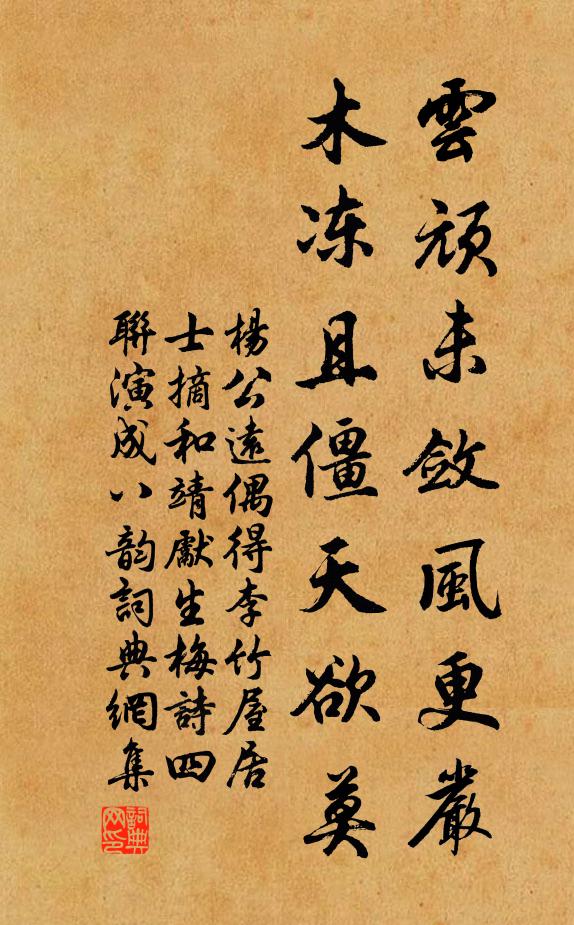 雲頑未斂風更嚴
木冻且僵天欲莫
楊公遠偶得李竹屋居
士摘和靖獻生梅詩四
聯演成八韵詞典網集
詞典网印